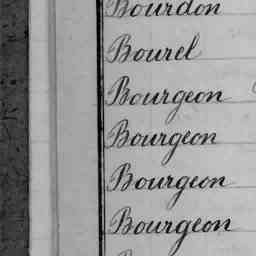 Bourdon
Bourel
Bourgeon
Bourgeon
Bourgeon
Bourgeon